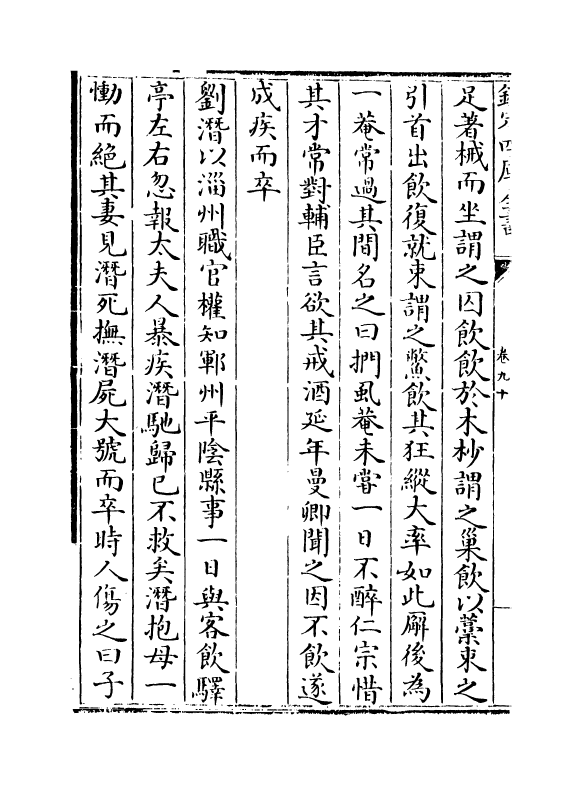 欽定四庫全書
卷九十
足著械而坐謂之囚飲飲於木杪謂之巢飲以藁束之
引首出飲復就束謂之鱉飲其狂縱大率如此廨後為
一菴常過其間名之曰捫虱菴未嘗一日不醉仁宗惜
其才常對輔臣言欲其戒酒延年曼卿聞之因不飲遂
成疾而卒
劉潛以淄州職官權知鄆州平陰縣事一日與客飲驛
亭左右忽報太夫人暴疾潛馳歸已不救矣潛抱母一
慟而絕其妻見潛死撫潛屍大號而卒時人傷之曰子